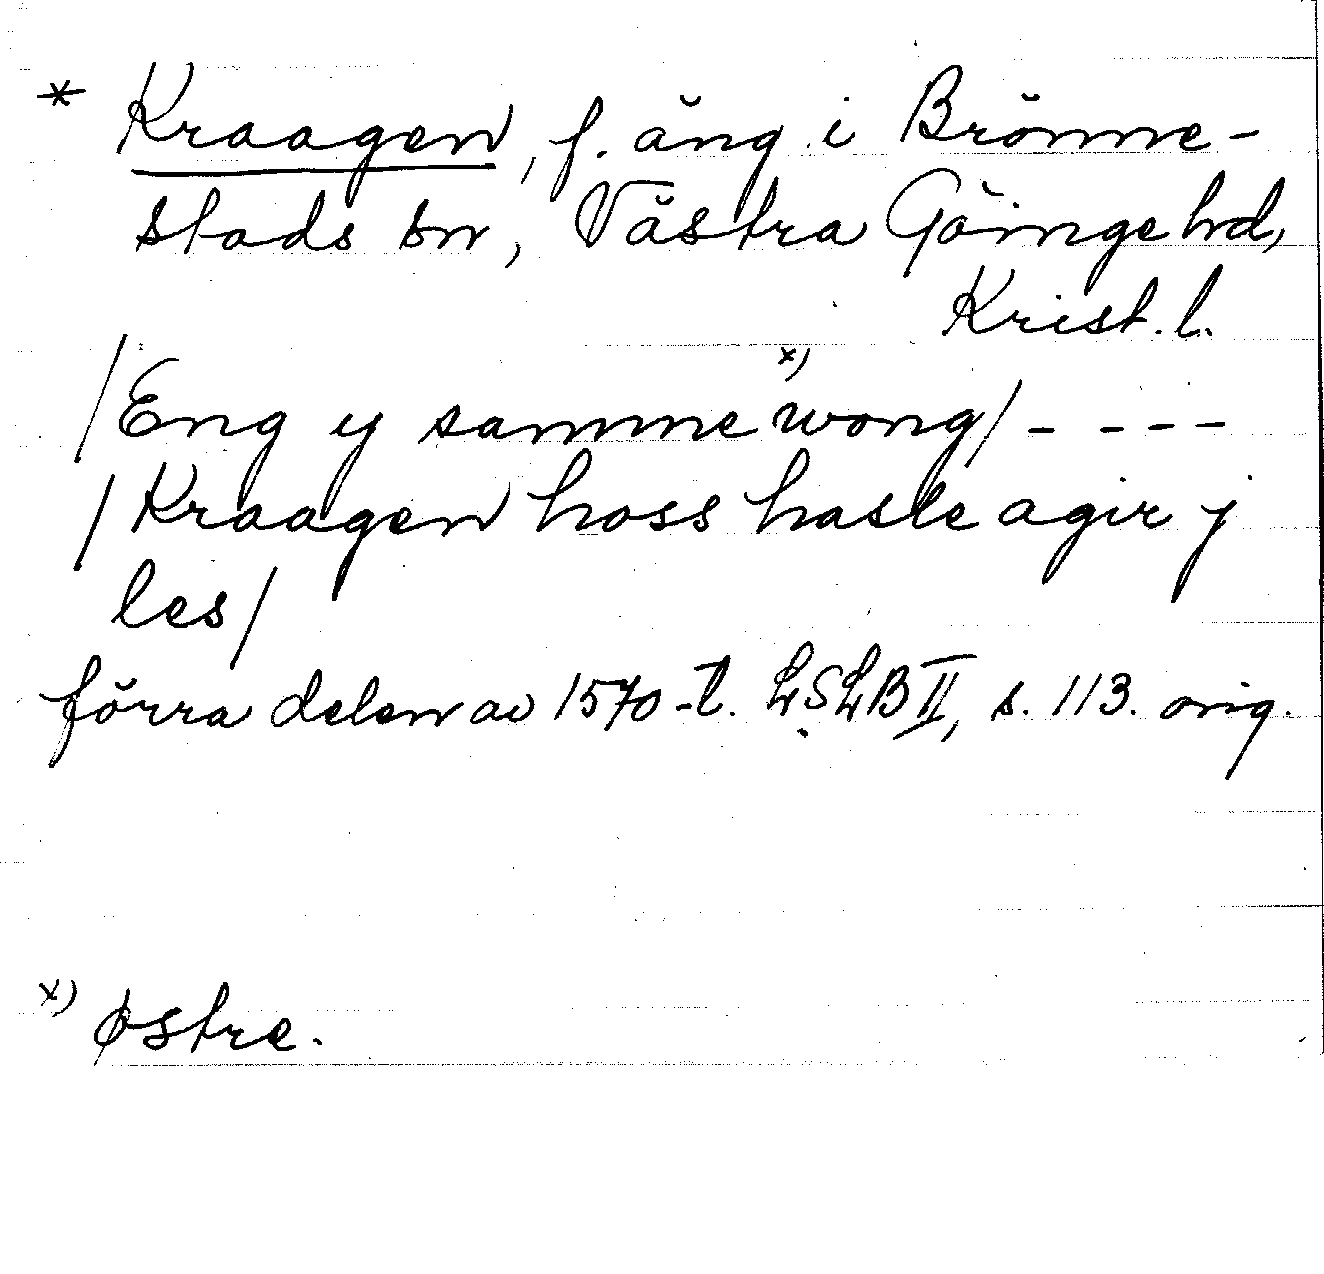 * Kraagen, f. äng i Brönne-
stads sn, Västra Göinge hd,
Krist. l.
/Eng y samme x) wong/ - - - -
/Kraagen hoss hasle agir y
les/
förra delen av 1570-t. LSLB II, s. 113. orig.
x) østre.